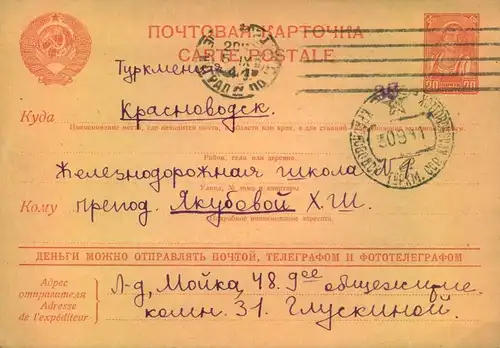 ПОЧТОВАЯ КАРТОЧКА
CARTE POSTALE
20 20
Туркмения
Куда Красноводск.
Наименование места, где находится почта, и области или края, а для станций
Район, села или деревни.
Железнодорожная школа
Улица, № дома и квартиры
Кому препод. Якубовой Х.Ш.
Подробное наименование адресата
30 9 41
ДЕНЬГИ МОЖНО ОТПРАВЛЯТЬ ПОЧТОЙ, ТЕЛЕГРАФОМ И ФОТОТЕЛЕГРАФОМ
Адрес отправителя
Adresse de l'expéditeur
Л-д, Мойка, 48. 9ое общежитие.
комн. 31. Глускиной.